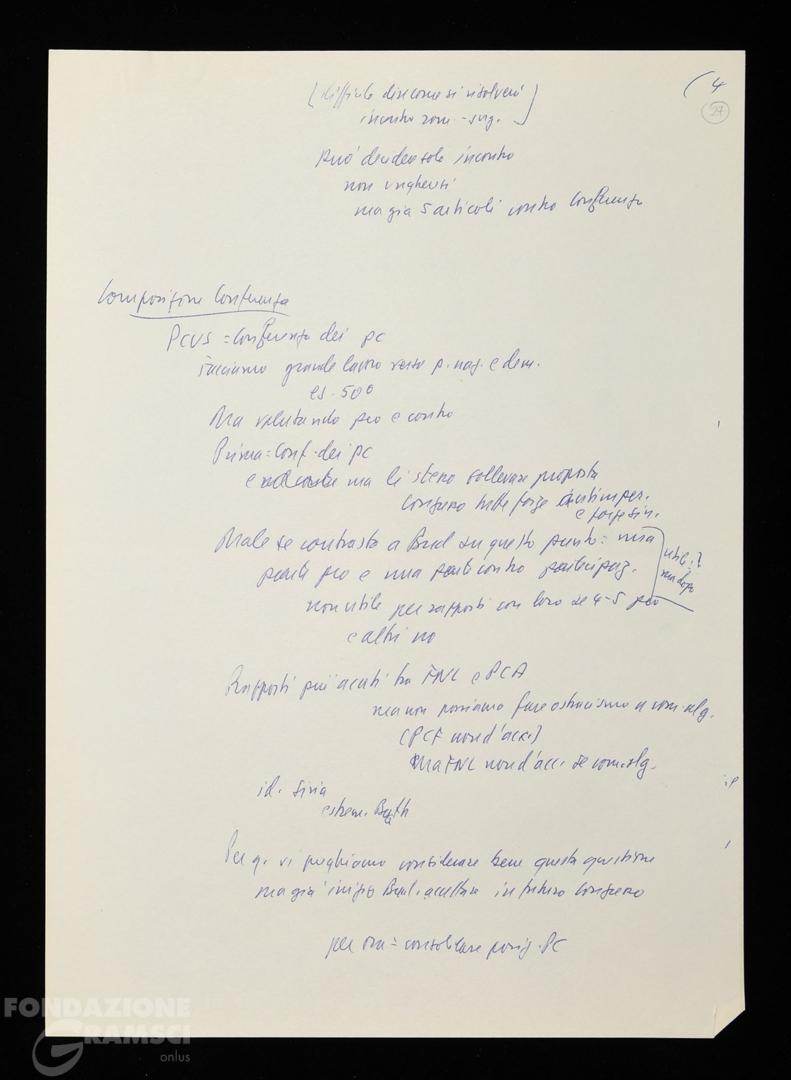 (4
27
(difficile dire come si risolverà
incontro rom.-sug.)
Può decidere solo incontro
non ungheresi
ma già 5 articoli contro Conferenza
Composizione Conferenza
PCUS = Conferenza dei pc
facciamo grande lavoro verso p. naz. e dem.
es. 50°
Ma valutando pro e contro
Prima = Conf. dei pc
ma lì stesso sollevare proposta
Congresso tutte forze antimper.
e forze sin.
Male se contrasta a Bud su questo punto: una
parte pro e una parte contro particip.
utile?
ma dopo
non utile per rapporti con loro se 4-5 pro
e altri no
Rapporti più acuti tra FNL e PCA
ma non possiamo fare ostracismo a com. alg.
(PCF non d'acc.)
Ma FNL non d'acc. se com. alg.
id. Siria
estrem. Baath
Per q. vi preghiamo considerare bene questa questione
ma già inizio Bud. accettare in futuro Congresso
per ora = consolidare posiz. PC
FONDAZIONE
GRAMSCI
onlus